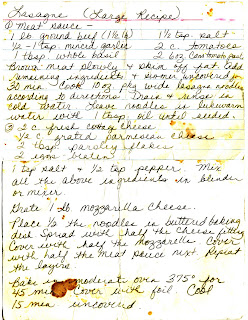 Lasagne (Large Recipe)
① Meat sauce -
1 lb. ground beef (1½ lb) 1½ tsp. salt
½ - 1 tsp. minced garlic 2 c. tomatoes
1 tbsp. whole basil 2 6oz cans tomato paste
Brown meat slowly & skim off fat. Add
remaining ingredients & simmer uncovered for
30 min. Cook 10oz pkg wide lasagne noodles
according to directions. Drain & rinse in
cold water. Leave noodles in lukewarm
water with 1 tbsp. oil until needed.
② 3 c. fresh cottage cheese
½ c. grated parmesian cheese
2 tbsp. parsley flakes
2 eggs beaten
1 tsp salt & ½ tsp pepper. Mix
all the above ingredients in blender
or mixer.
Grate 1 lb mozzarella cheese.
Place ½ the noodles in buttered baking
dish. Spread with half the cheese filling
Cover with half the mozzarella. Cover
with half the meat sauce next. Repeat
the layers.
Bake in moderate oven 375° for
45 min. cover with foil. Cook
15 min uncovered.